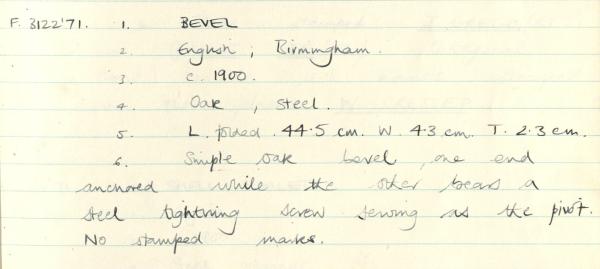 F. 3122'71. 1. BEVEL
2. English ; Birmingham.
3. c. 1900.
4. Oak , steel.
5. L. folded 44.5 cm. W. 4.3 cm. T. 2.3 cm.
6. Simple oak bevel, one end
anchored while the other bears a
steel tightning screw serving as the pivot.
No stamped marks.